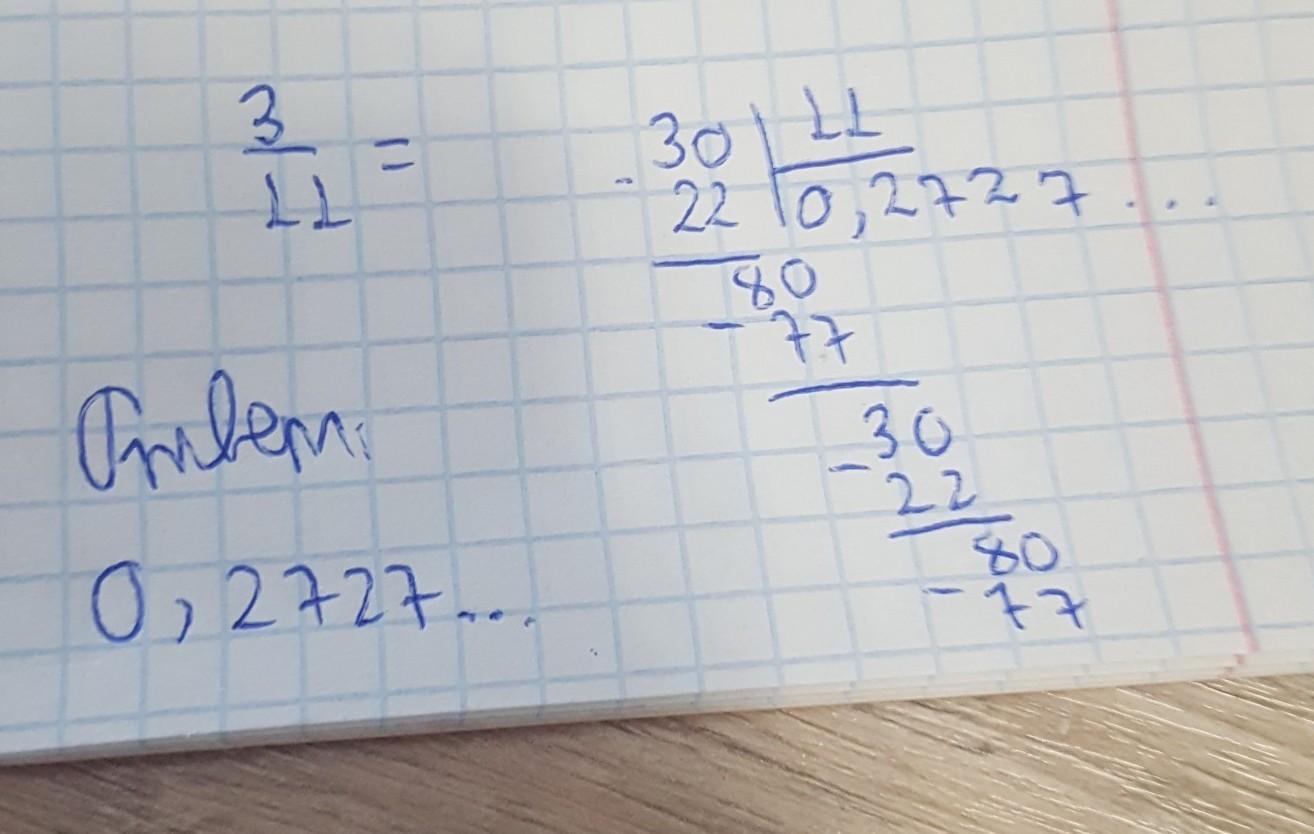 3
11 =
30 | 11
- 22 | 0,2727...
80
- 77
30
- 22
80
- 77
Ответ:
0,2727...